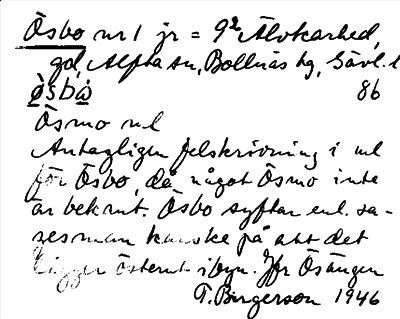 Ösbo nr 1 jr = 9² Älvkarhed,
gd, Alfta sn, Bollnäs hg, Gävl. l
ösbo 86
Ösmo ml
Antagligen felskrivning i ml
för Ösbo, då något Ösmo inte
är bekant. Ösbo syftar enl. sa-
gesman kanske på att det
ligger österut i byn. Jfr Ösängen
T. Birgerson 1946